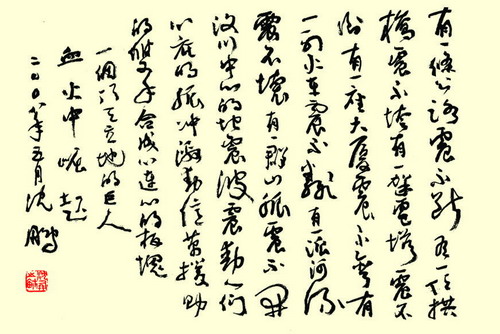 有一條公路震不断有一座拱
橋震不垮有一群電塔震不
倒有一座大厦震不 有
一列火车震不 有一派河流
震不壞有一群山脈震不
汶川中心的地震波震動人们
心底的脈冲激動億萬援助
的雙手合成心連心的板塊
一個頂天立地的巨人
血火中崛起
二〇〇八年五月沈鵬